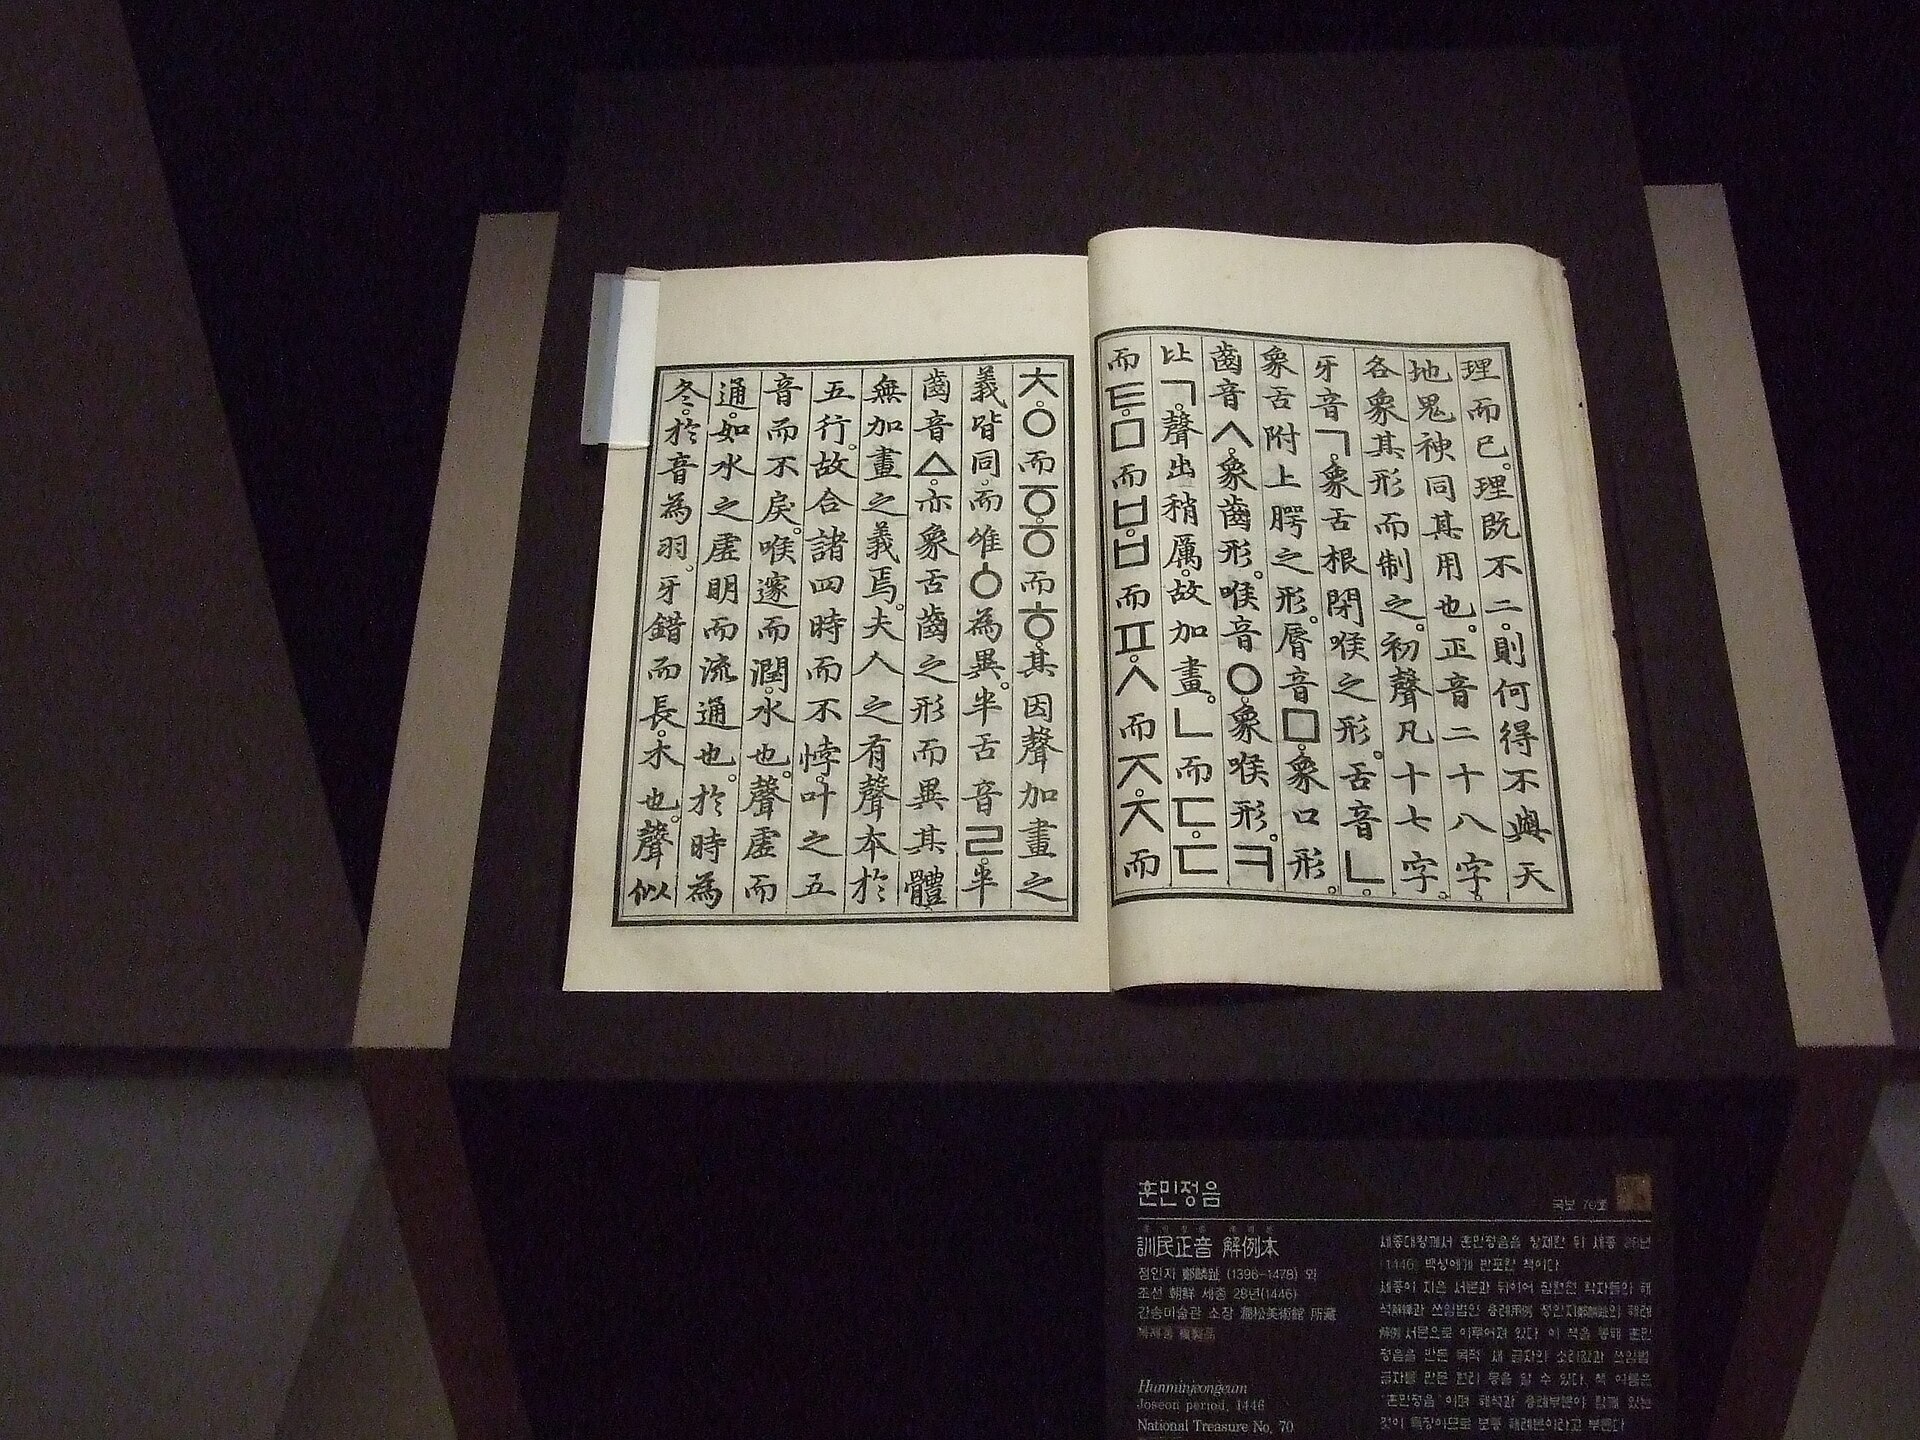 理而已。理既不二。則何得不與天
地鬼神同其用也。正音二十八字。
各象其形而制之。初聲凡十七字。
牙音ㄱ。象舌根閉喉之形。舌音ㄴ。
象舌附上腭之形。脣音ㅁ。象口形。
齒音ㅅ。象齒形。喉音ㅇ。象喉形。ㅋ
比ㄱ。聲出稍厲。故加畫。ㄴ而ㄷ。ㄷ
而ㅌ。ㅁ而ㅂ。ㅂ而ㅍ。ㅅ而ㅈ。ㅈ而
ㅊ。ㅇ而ㆆ。ㆆ而ㅎ。其因聲加畫之
義皆同。而唯ㆁ為異。半舌音ㄹ。半
齒音ㅿ。亦象舌齒之形而異其體
無加畫之義焉。夫人之有聲本於
五行。故合諸四時而不悖。叶之五
音而不戾。喉邃而潤。水也。聲虛而
通。如水之虛明而流通也。於時為
冬。於音為羽。牙錯而長。木也。聲似
훈민정음
국보 70호
訓民正音 解例本
정인지 鄭麟趾 (1396-1478) 외
조선 朝鮮 세종 28년(1446)
간송미술관 소장 澗松美術館 所藏
복제품 複製品
Hunminjeongeum
Joseon period, 1446
National Treasure No. 70
세종대왕께서 훈민정음을 창제한 뒤 세종 28년
(1446) 백성에게 반포한 책이다
세종이 지은 서문과 뒤이어 집현전 학자들의 해
서문으로 이루어져 있다 이 책을 통해 훈민
정음을 만든 목적 새 글자의 소리값과 쓰임법
글자를 만든 원리 등을 알 수 있다. 책 이름은
'훈민정음'이며 해석과 용례부분이 함께 있는
것이 특징이므로 보통 해례본이라고 부른다